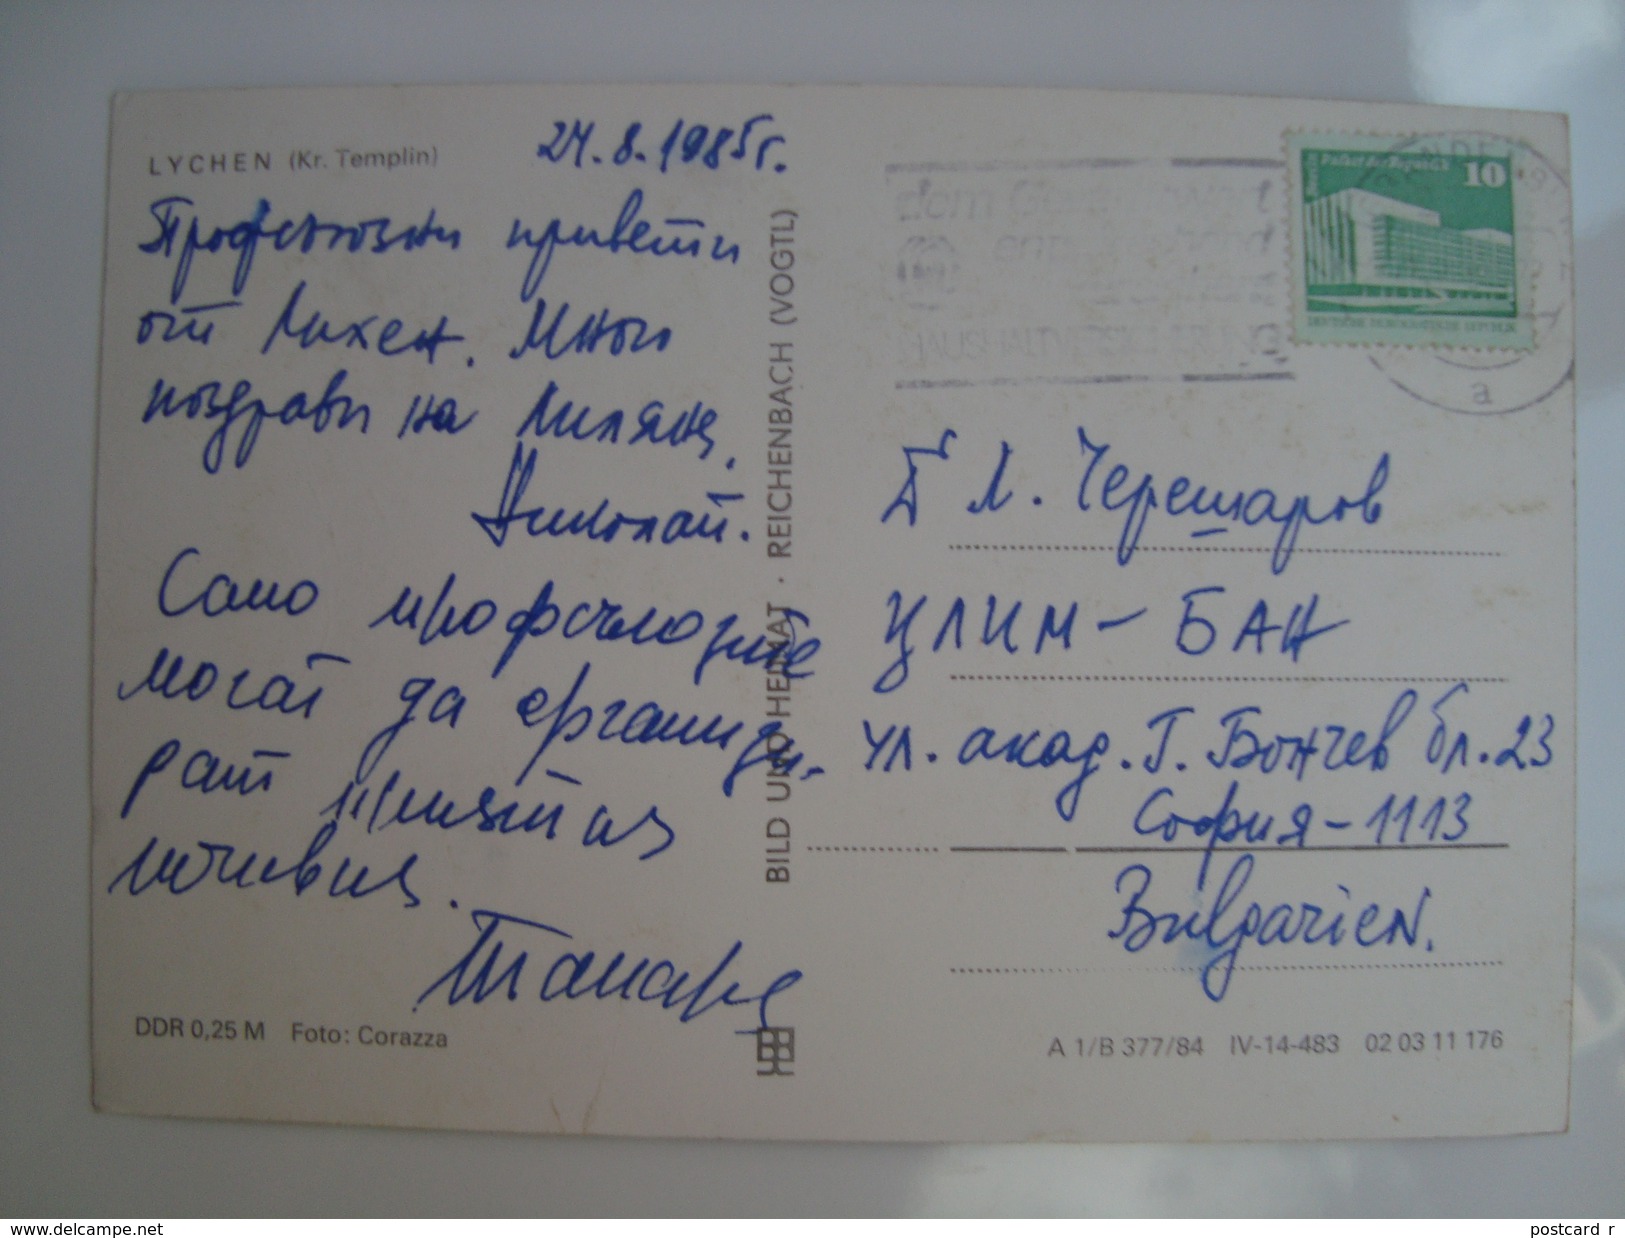 LYCHEN (Kr. Templin)
24.8.1985г.
Профсъюзни привети
от Лихен. Много
поздрави на Лиляна,
Николай.
Само профсъюзите
могат да организи-
рат приятна
почивка.
DDR 0,25 M Foto: Corazza
BILD UND HEIMAT · REICHENBACH (VOGTL)
dem
HAUSHALTVERSICHERUNG
Palast der Republik
10
DEUTSCHE DEMOKRATISCHE REPUBLIK
a
Л. Черешаров
ЦЛИМ - БАН
ул. акад. Г. Бончев бл. 23
София - 1113
Bulgarien.
A 1/B 377/84 IV-14-483 02 03 11 176
www.delcampe.net
postcard_r